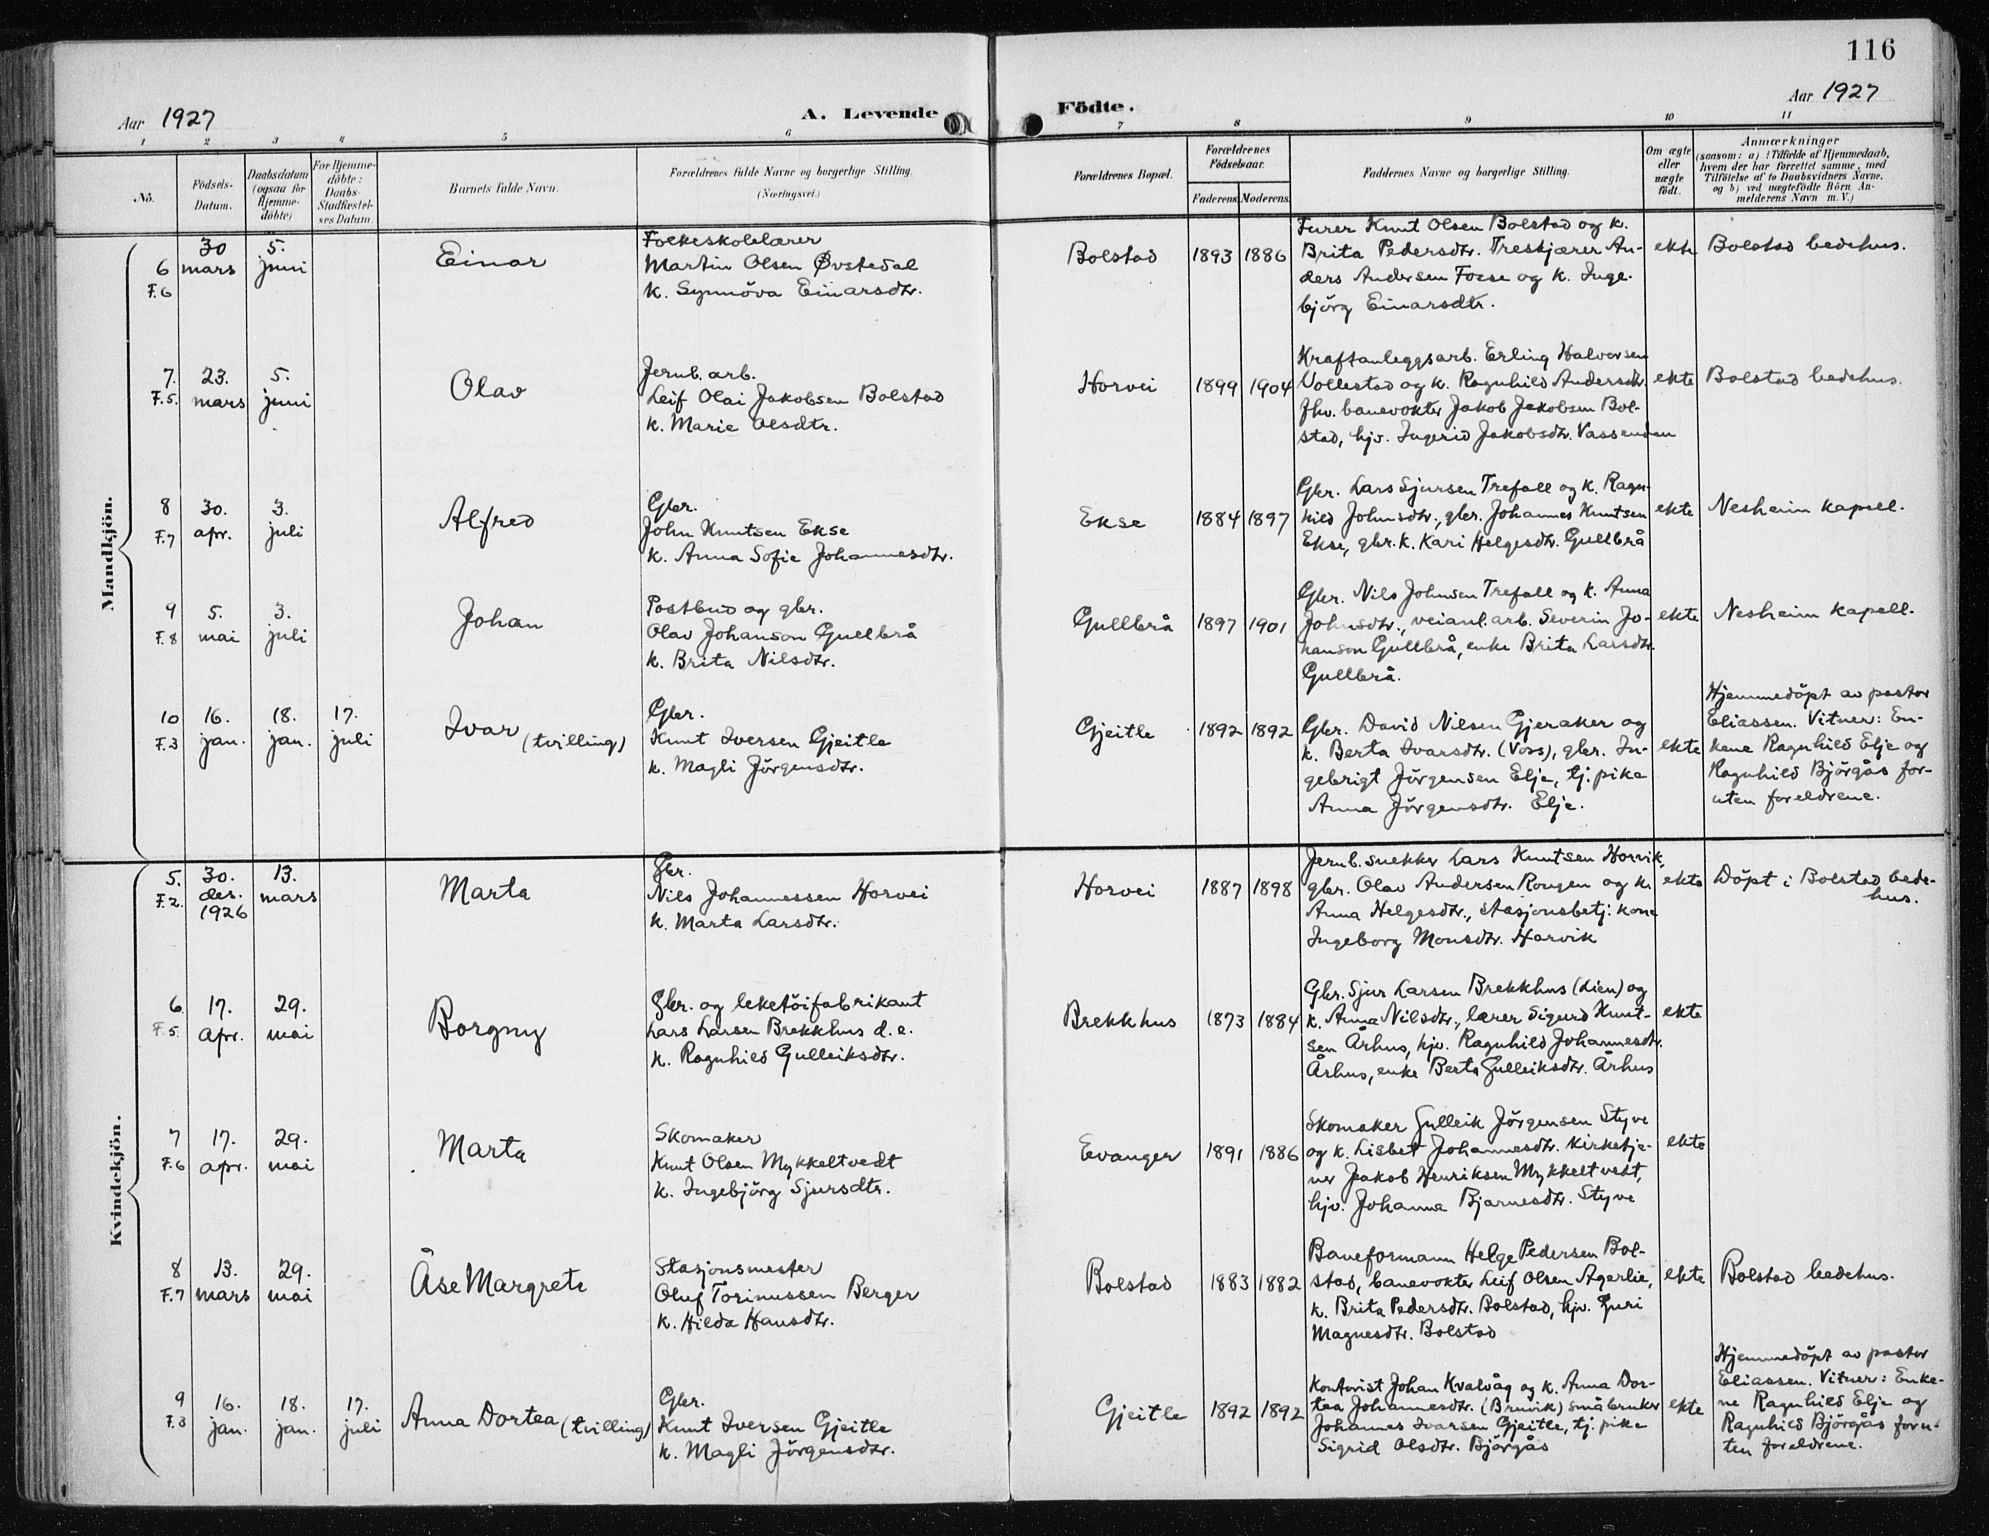 116
Aar 1927
A. Levende Födte.
Aar 1927
1 2 3 4 5 6 7 8 9 10 11
No.
Födsels-Datum.
Daabsdatum (ogsaa for Hjemme-döbte)
For Hjemme-döbte: Daabs-Stadfæstel-ses Datum.
Barnets fulde Navn.
Forældrenes fulde Navne og borgerlige Stilling.
(Næringsvei.)
Forældrenes Bopæl.
Forældrenes Födselsaar.
Faderens. Moderens.
Faddernes Navne og borgerlige Stilling.
Om ægte eller uægte födt.
Anmærkninger
(saasom: a) i Tilfælde af Hjemmedaab,
hvem der har forrettet samme, med
Tilföielse af to Daabsvidners Navne,
og b) ved uægtefödte Börn An-
melderens Navn m. V.)
Mandkjön.
6 F.6
30 mars
5. juni
Einar
Folkeskolelærer
Martin Olsen Øvstedal
k. Synnöva Einarsdtr.
Bolstad
1893 1886
Furer Knut Olsen Bolstad og k.
Brita Pedersdtr. Treskjærer An-
ders Andersen Fosse og k. Inge-
björg Einarsdtr.
ekte
Bolstad bedehus.
7. F.5.
23. mars
5. juni
Olav
Jernb. arb.
Leif Olai Jakobsen Bolstad
k. Marie Olsdtr.
Horvei
1899 1904
Kraftanleggsarb. Erling Halvorsen
Vollestad og k. Ragnhild Andersdtr.
fhv. banevokter Jakob Jakobsen Bol-
stad, hjv. Ingerid Jakobsdtr. Vassenden
ekte
Bolstad bedehus.
8 F.7
30. apr.
3. juli
Alfred
Gbr.
John Knutsen Ekse
k. Anna Sofie Johannesdtr.
Ekse
1884 1897
Gbr. Lars Sjursen Trefall og k. Ragn-
hild Johnsdtr., gbr. Johannes Knutsen
Ekse, gbr. k. Kari Helgesdtr. Gullbrå
ekte
Nesheim kapell.
9 F.8
5. mai
3. juli
Johan
Postbud og gbr.
Olav Johanson Gullbrå
k. Brita Nilsdtr.
Gullbrå
1897 1901
Gbr. Nils Johnsen Trefall og k. Anna
Johnsdtr., veianl.arb. Severin Jo-
hanson Gullbrå, enke Brita Larsdtr.
Gullbrå.
ekte
Nesheim kapell.
10 F.3
16. jan.
18. jan.
17. juli
Ivar (tvilling)
Gbr.
Knut Iversen Gjeitle
k. Magli Jörgensdtr.
Gjeitle
1892 1892
Gbr. David Nilsen Gjeraker og
k. Berta Ivarsdtr. (Voss), gbr. In-
gebrigt Jörgensen Elje, tj. pike
Anna Jörgensdtr. Elje.
ekte
Hjemmedöpt av pastor
Eliassen. Vitner: En-
kene Ragnhild Elje og
Ragnhild Björgås for-
uten foreldrene.
Kvindekjön.
5. F.2.
30. des. 1926
13. mars
Marta
Gbr.
Nils Johannessen Horvei
k. Marta Larsdtr.
Horvei
1887 1898
Jernb. snekker Lars Knutsen Horvik,
gbr. Olav Andersen Rongen og k.
Anna Helgesdtr., stasjonsbetj. kone
Ingeborg Monsdtr. Horvik
ekte
Döpt i Bolstad bede-
hus.
6 F.5.
17. apr.
29. mai
Borgny
Gbr. og leketöifabrikant
Lars Larsen Brekkhus d. e.
k. Ragnhild Gulleiksdtr.
Brekkhus
1873 1884
Gbr. Sjur Larsen Brekkhus (Lien) og
k. Anna Nilsdtr., lærer Sigurd Knut-
sen Århus, hjv. Ragnhild Johannesdtr.
Århus, enke Berta Gulleiksdtr. Århus
ekte
7 F.6
17. apr.
29. mai
Marta
Skomaker
Knut Olsen Mykkeltvedt
k. Ingebjörg Sjursdtr.
Evanger
1891 1886
Skomaker Gulleik Jörgensen Styve
og k. Lisbet Johannesdtr. kirketje-
ner Jakob Henriksen Mykkeltvedt,
hjv. Johanna Bjarnesdtr. Styve
ekte
8 F.7
13. mars
29. mai
Åse Margrete
Stasjonsmester
Oluf Torinussen Berger
k. Hilda Hansdtr.
Bolstad
1883 1882
Baneformann Helge Pedersen Bol-
stad, banevokter Leif Olsen Agerlie,
k. Brita Pedersdtr. Bolstad, hjv. Guri
Magnesdtr. Bolstad
ekte
Bolstad bedehus.
9 F.3
16. jan.
18. jan.
17. juli
Anna Dortea (tvilling)
Gbr.
Knut Iversen Gjeitle
k. Magli Jörgensdtr.
Gjeitle
1892 1892
Kontorist Johan Kvalvåg og k. Anna Dor-
tea Johannesdtr. (Bruvik) småbruker
Johannes Ivarsen Gjeitle, tj. pike
Sigrid Olsdtr. Björgås
ekte
Hjemmedöpt av pastor
Eliassen. Vitner: Enke-
ne Ragnhild Elje og
Ragnhild Björgås foru-
ten foreldrene.